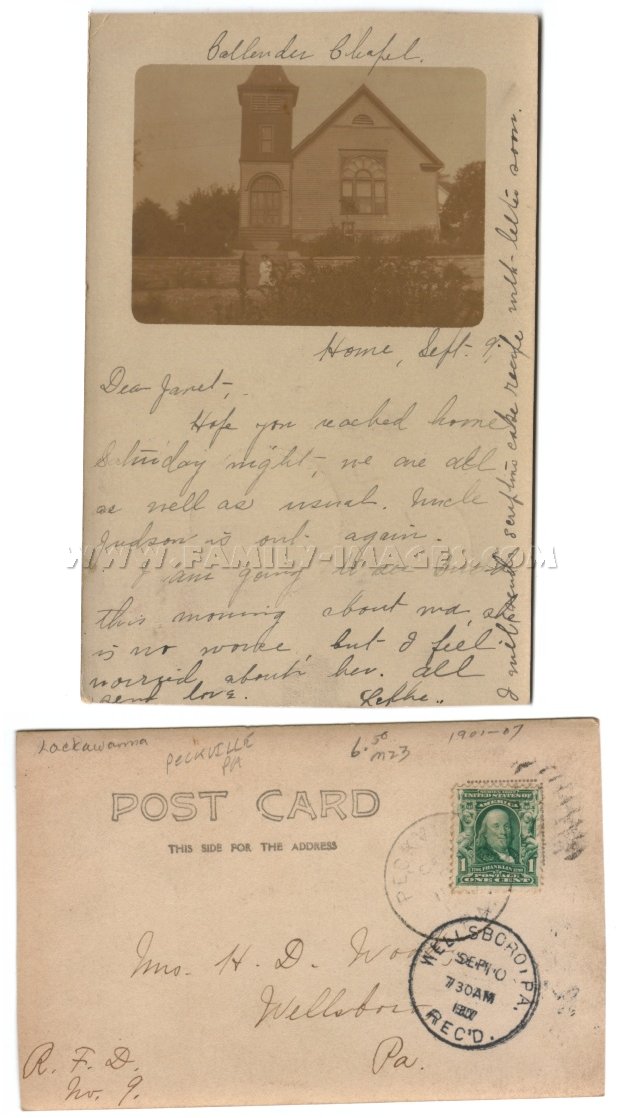 Callender Chapel.
Home, Sept. 9.
Dear Janet,
Hope you reached home
Saturday night, we are all
as well as usual. Uncle
Judson is out again.
WWW.FAMILY-IMAGES.COM
I am going to see
this morning about ma, she
is no worse, but I feel
worried about her. All
send love.
I will send scripture cake recipe with letter soon.
Lackawanna
PECKVILLE
PA
6.50
M23
1901-07
POST CARD
THIS SIDE FOR THE ADDRESS
UNITED STATES OF
AMERICA
1 FRANKLIN 1
POSTAGE
ONE CENT
PECKV
WELLSBORO, PA.
SEP 10
7 30 AM
REC'D.
Mrs. H. D.
Wellsboro
Pa.
R. F. D.
No. 9.